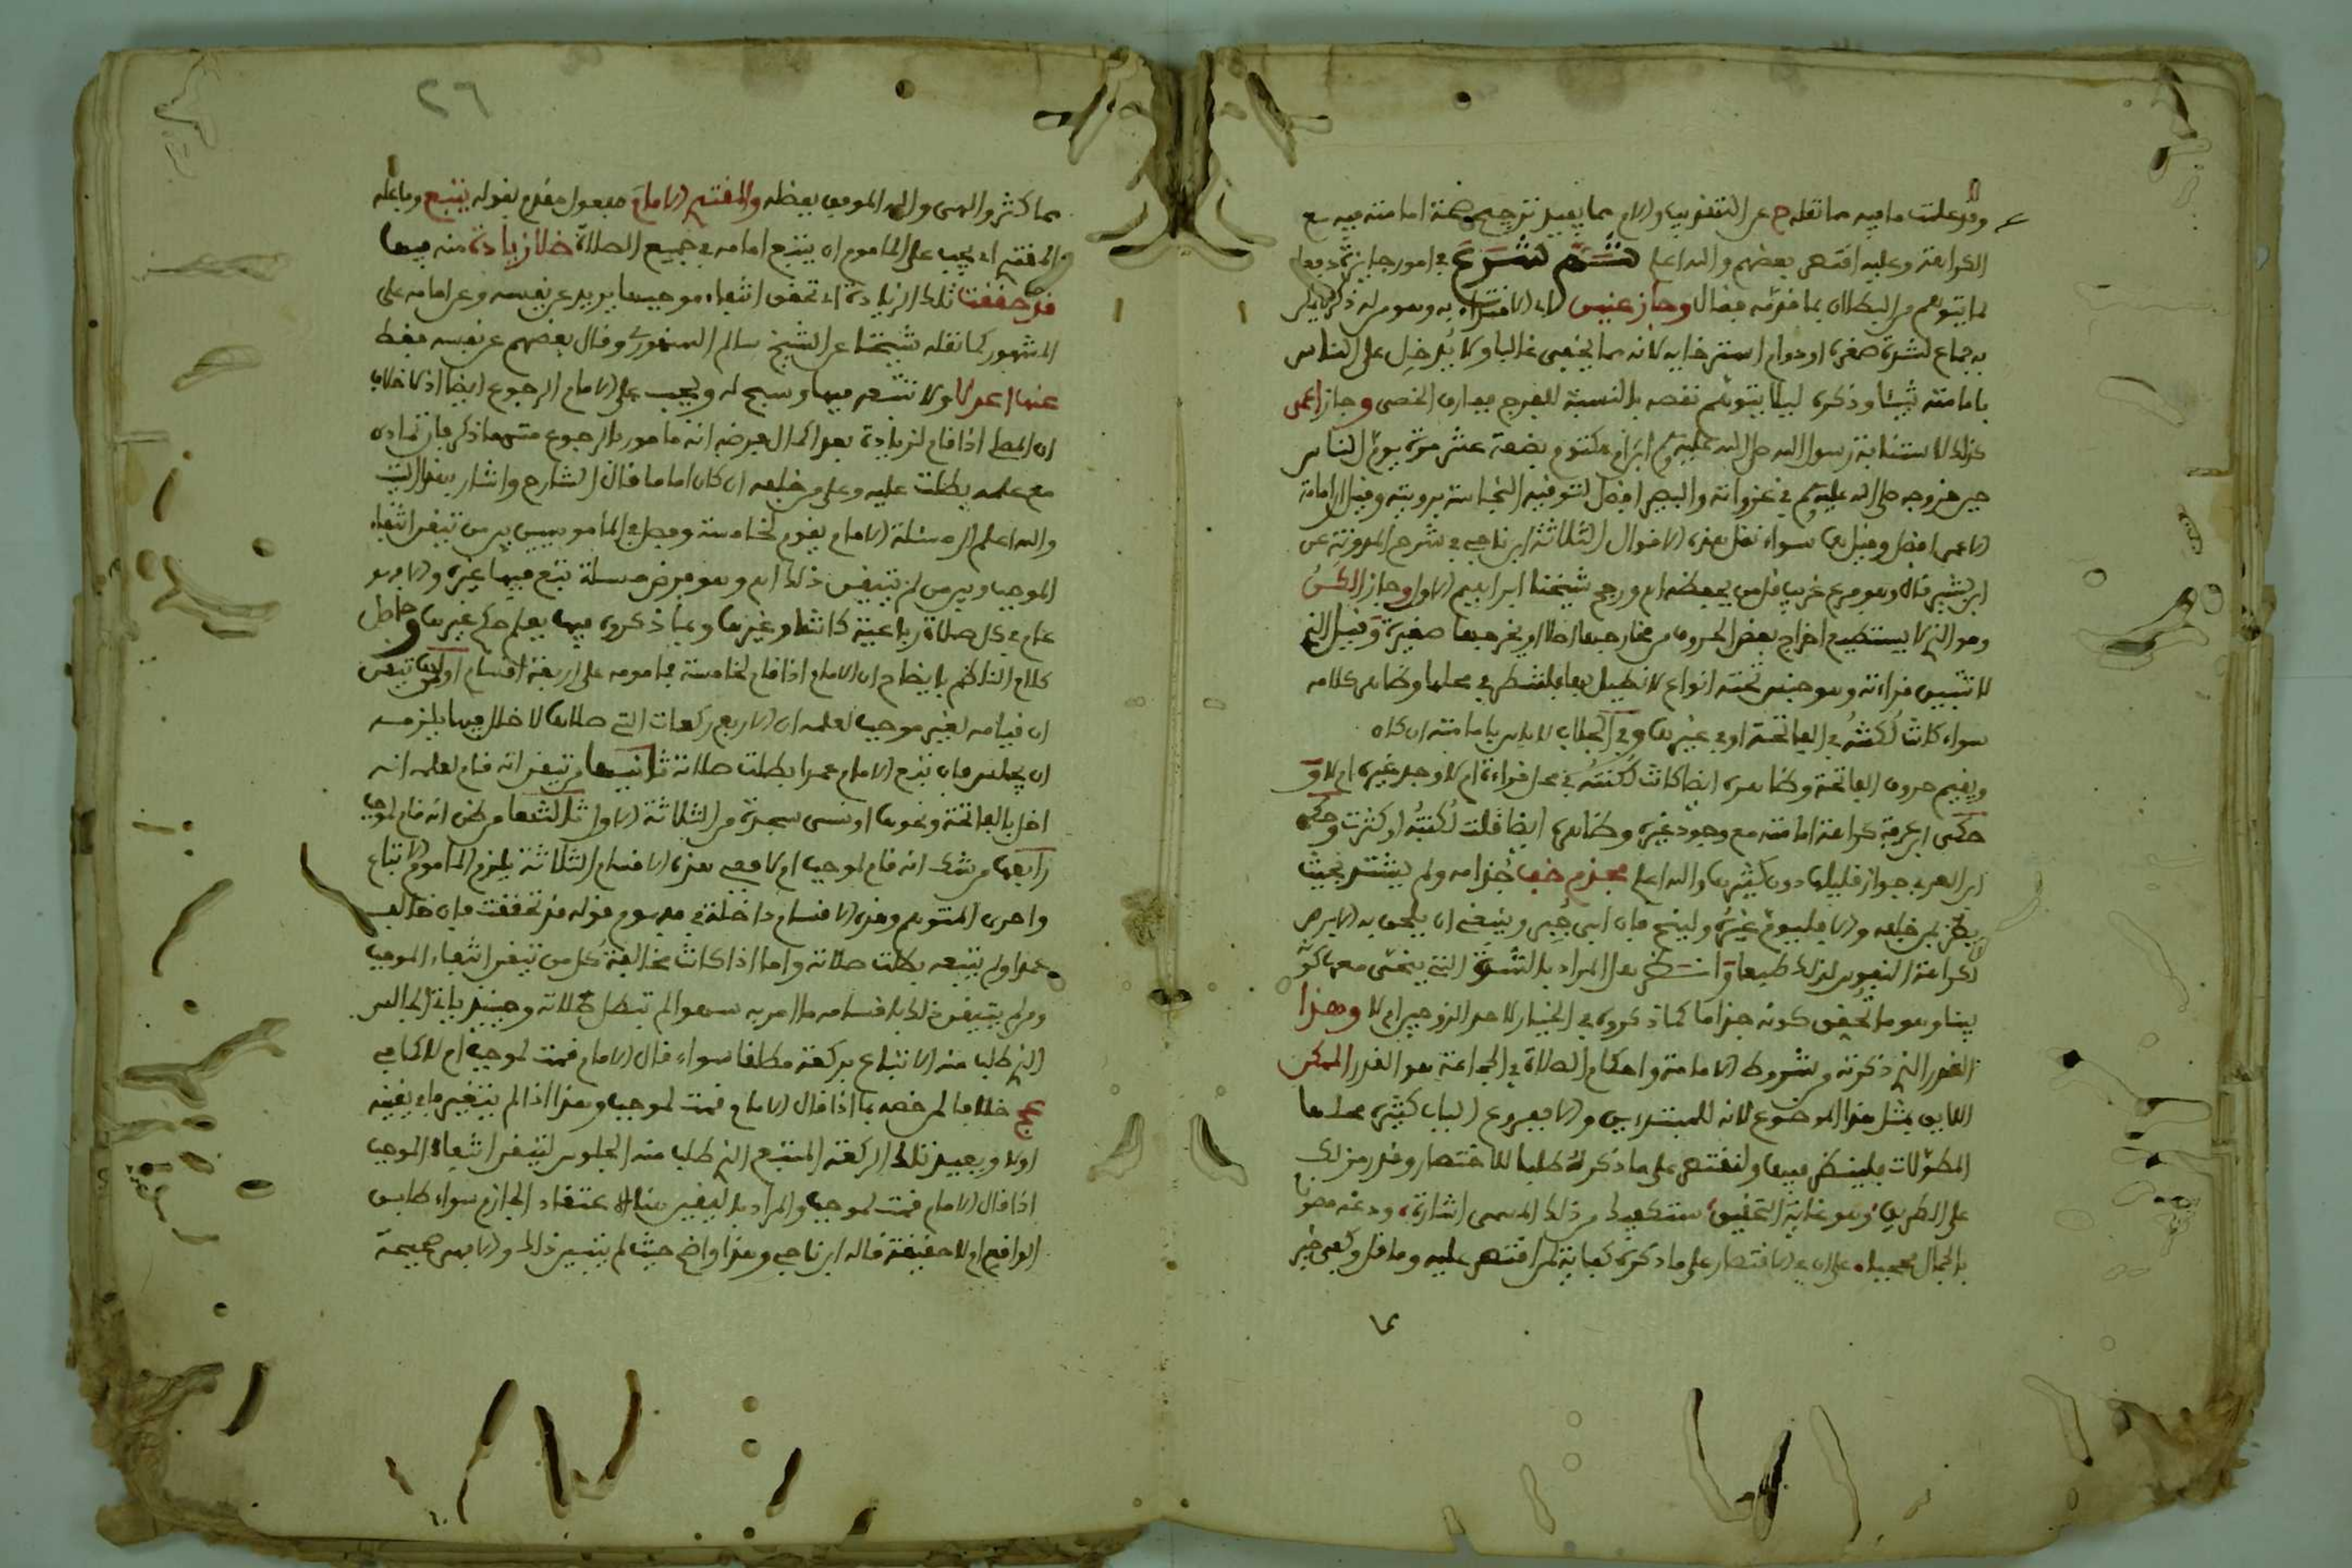 وقد علمت ما فيه مما نقله ح عن التقريب والام مما يفيد ترجيح صحة امامته فيه مع
الكراهة وعليه اقتصر بعضهم والله اعلم ثم شرع في امور جايزة دفعا
لما يتوهم من البطلان بما قدمه فقال وجاز عنين اي الاقتداء به وهو من له ذكر لا يمكن
به جماع لشدة صغره او دوام استرخايه لانه مما يخفى غالبا ولا يُدخِل على الناس
بامامته شيئا وذكره ليلا يتوهم نقصه بالنسبة للفرج فيقارن الخصى وجاز اعمى
كذلك لاستنابة رسول الله صلى الله عليه وسلم ابن ام مكتوم بضعة عشر مرة يوم الناس
حين خروجه صلى الله عليه وسلم في غزواته والبصير افضل لتوقيه النجاسة برويته وقيل ان امامة
الاعمى افضل وقيل هما سواء نقل هذه الاقوال الثلاثة ابن ناجي في شرح المدونة عن
ابن بشير قاله وهو فرع غريب قل من يحفظه اه ورجح شيخنا ابراهيم الاول وجاز الكن
وهو الذي لا يستطيع اخراج بعض الحروف من مخارجها اصلا او يخرجها مغيرة وقيل الذي
لا تتبين قراءته وهو جنس تحته انواع لا نطيل بها فلتنظر في محلها وظاهر كلامه
سواء كانت لُكنته في الفاتحة او في غيرها وفي الجلاب لا باس بامامته ان كان
ويقيم حروف الفاتحة وظاهره ايضا كانت لُكنته في محل قراءة ام لا وجد غيره ام لا و
حكى ابن عرفة كراهة امامته مع وجود غيره وظاهره ايضا قلت لُكنته او كثرت وحكى
ابن العربي جواز قليلها دون كثيرها والله اعلم مجذم خف جُذامه ولم يشتد بحيث
يضر بمن خلفه والا فليوم غيره ولينح فان ابى جُبِر وينبغي ان يلحق به الابرص
لكراهة النفوس لذلك طبعا وانظر هل المراد بالشدة التي ينحى معها كونه
بينا وهو ما تحقق كونه جذاما كما ذكروه في الخيار لاحد الزوجين ام لا وهذا
القدر الذي ذكرته من شروط الامامة واحكام الصلاة في الجماعة هو القدر الممكن
اللايق بمثل هذا الموضوع لانه للمبتدءين والا ففروع الباب كثيرة محلها
المطولات فلينظر فيها ولنقتصر على ما ذكر له طلبا للاختصار
بالجمال على ان في الاقتصار على ما ذكره كفاية لمن اقتصر عليه وما قل وكفى خير
٢٦
مما كثر والهى والله الموفق بفضله والمقتدي الامام مفعول مقدم بقوله يتبع وفاعله
المقتدي اي يجب على الماموم ان يتبع امامه في جميع الصلاة خلا زيادة منه فيها
قد حققت تلك الزيادة اي تحقق انتفاء موجبها يريد عن نفسه وعن امامه على
المشهور كما نقله شيخنا عن الشيخ سالم السنهوري وقال بعضهم عن نفسه فقط
عنها اعدلا ولا تتبعه فيها وسبح له ويجب على الامام الرجوع ايضا اذ لا خلاف
ان المصلي اذا قام لزيادة بعد اكمال فرضه انه مامور بالرجوع متى ما ذكر فان تمادى
مع علمه بطلت عليه وعلى من خلفه ان كان اماما قال الشارح واشار بهذا البيت
والله اعلم الى مسئلة الامام يقوم لخامسة وفصل في المامومين بين من تيقن انتفاء
الموجب وبين من لم يتيقن ذلك اه وهو فرض مسئلة تبع فيها غيره والامر هو
عام في كل صلاة رباعية كانت او غيرها وبما ذكروه فيها يعلم حكم غيرها وحاصل
كلام الناظم بايضاح ان الامام اذا قام لخامسة فمامومه على اربعة اقسام اولها من تيقن
ان قيامه لغير موجب لعلمه ان الاربع ركعات التي صلاها لا خلل فيها يلزمه
ان يجلس فان تبع الامام عمدا بطلت صلاته ثانيها من تيقن انه قام لعلمه انه
اخل بالفاتحة ونحوها او نسى سجدة من الثلاثة الاول ثالثها من ظن انه قام لموجب
رابعها من شك انه قام لموجب ام لا ففي هذه الاقسام الثلاثة يلزم الماموم الاتباع
واحرى المتوهم وهذه الاقسام داخلة في مفهوم قوله قد تحققت فان خالف
عمدا ولم يتبعه بطلت صلاته واما اذا كانت مخالفة كل من تيقن انتفاء الموجب
ومن لم يتيقن ذلك باقسامه ما امر به سهوا لم تبطل صلاته وحينئذ ياتي الجالس
الذي طلب منه الاتباع بركعة مطلقا سواء قال الامام قمت لموجب ام لا كما في
عج خلافا لمن خصه بما اذا قال الامام قمت لموجب وهذا اذا لم يتغير ما تيقنه
اولا ويعيد تلك الركعة المتبع الذي طلب منه الجلوس لتيقن انتفاء الموجب
اذا قال الامام قمت لموجب والمراد باليقين هنا الاعتقاد الجازم سواء طابق
الواقع ام لا حقيقة قاله ابن ناجي وهذا واضح حيث لم يتبين ذلك والا فهي صحيحة